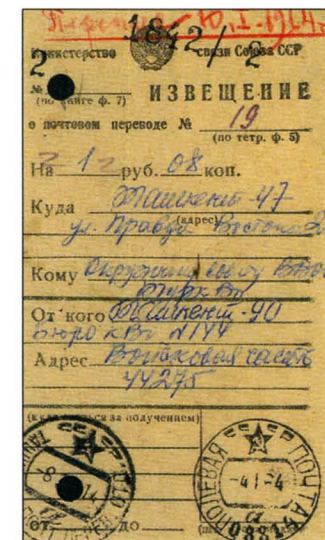 10.I-1964
1842/2
Министерство связи Союза ССР
2
№
(по книге ф. 7)
ИЗВЕЩЕНИЕ
о почтовом переводе № 19
(по тетр. ф. 5)
На 1 руб. 08 коп.
Куда Ташкент-47
(адрес)
ул. Правда Востока
Кому Окружному совету
ТуркВО
От кого Ташкент-90
Бюро КВО №144
Адрес Войсковая часть
44275
(куда явиться за получением)
ПОЛЕВАЯ ПОЧТА
-4 I -4
от до